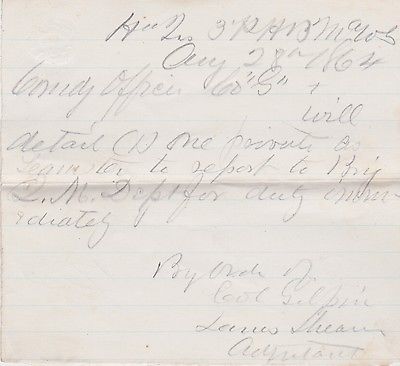 Hd Qrs 3" P H B Md Vols
Aug 28th 1864
Comdg Officer Co "G" +
will
detail (1) one private as
Teamster to report to Brig
Q. M. Dept for duty imme-
diately
By Order of
Col Gilpin
James Shearer
Adjutant